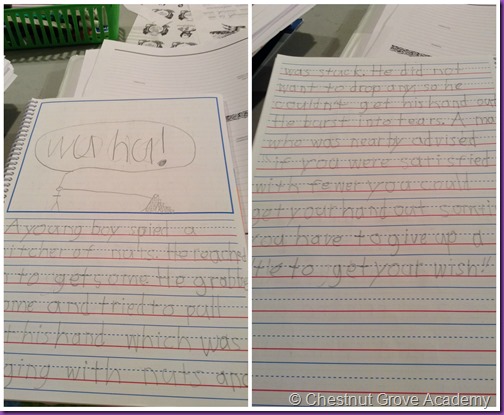 wa ha!
A young boy spiet a
itcher of nuts. He reache
n to get some He grabbe
ome and tried to pull
t his hand which was
ging with nuts and
was stuck. He did not
want to drop any so he
couldn't get his hand out
He burst into tears. A ma
who was nearby advised
"if you were satisfied
with fewer you could
get your hand out
you have to give up a
to get your wish!"
© Chestnut Grove Academy